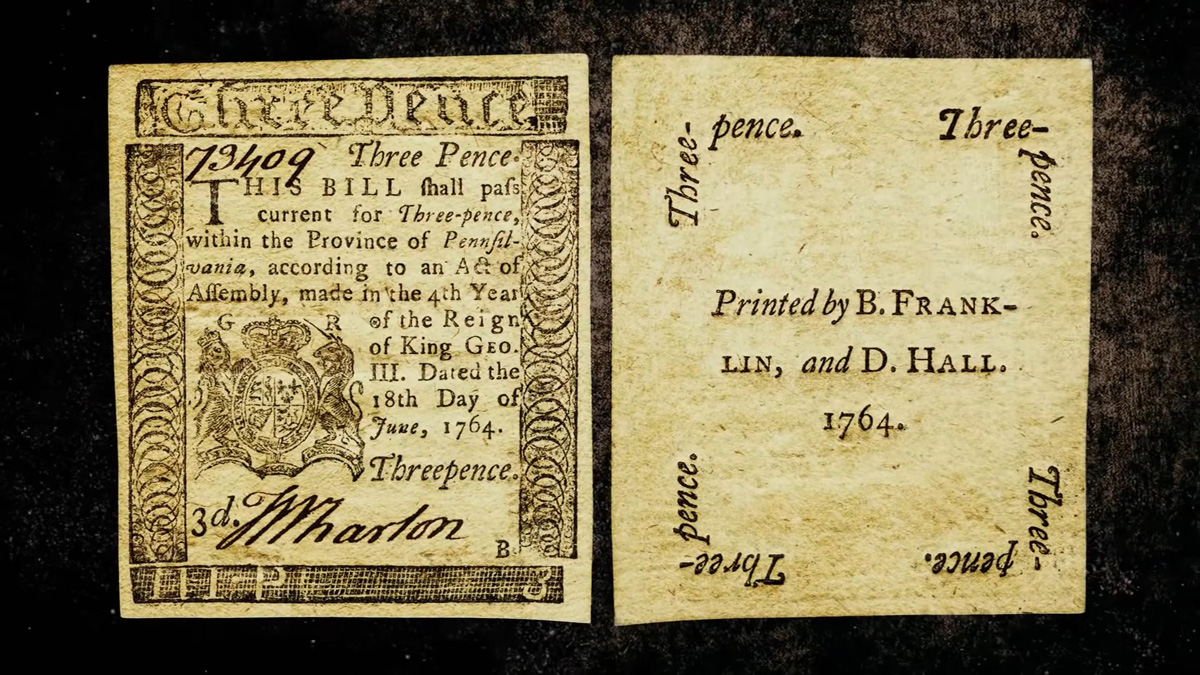 Three Pence
73409 Three Pence.
THIS BILL ſhall paſs
current for Three-pence,
within the Province of Pennſil-
vania, according to an Act of
Aſſembly, made in the 4th Year
G R of the Reign
of King GEO.
III. Dated the
18th Day of
June, 1764.
Threepence.
3d. Wharton
B
Three-pence.
Three-pence.
Printed by B. FRANK-
LIN, and D. HALL.
1764.
Three-pence.
Three-pence.